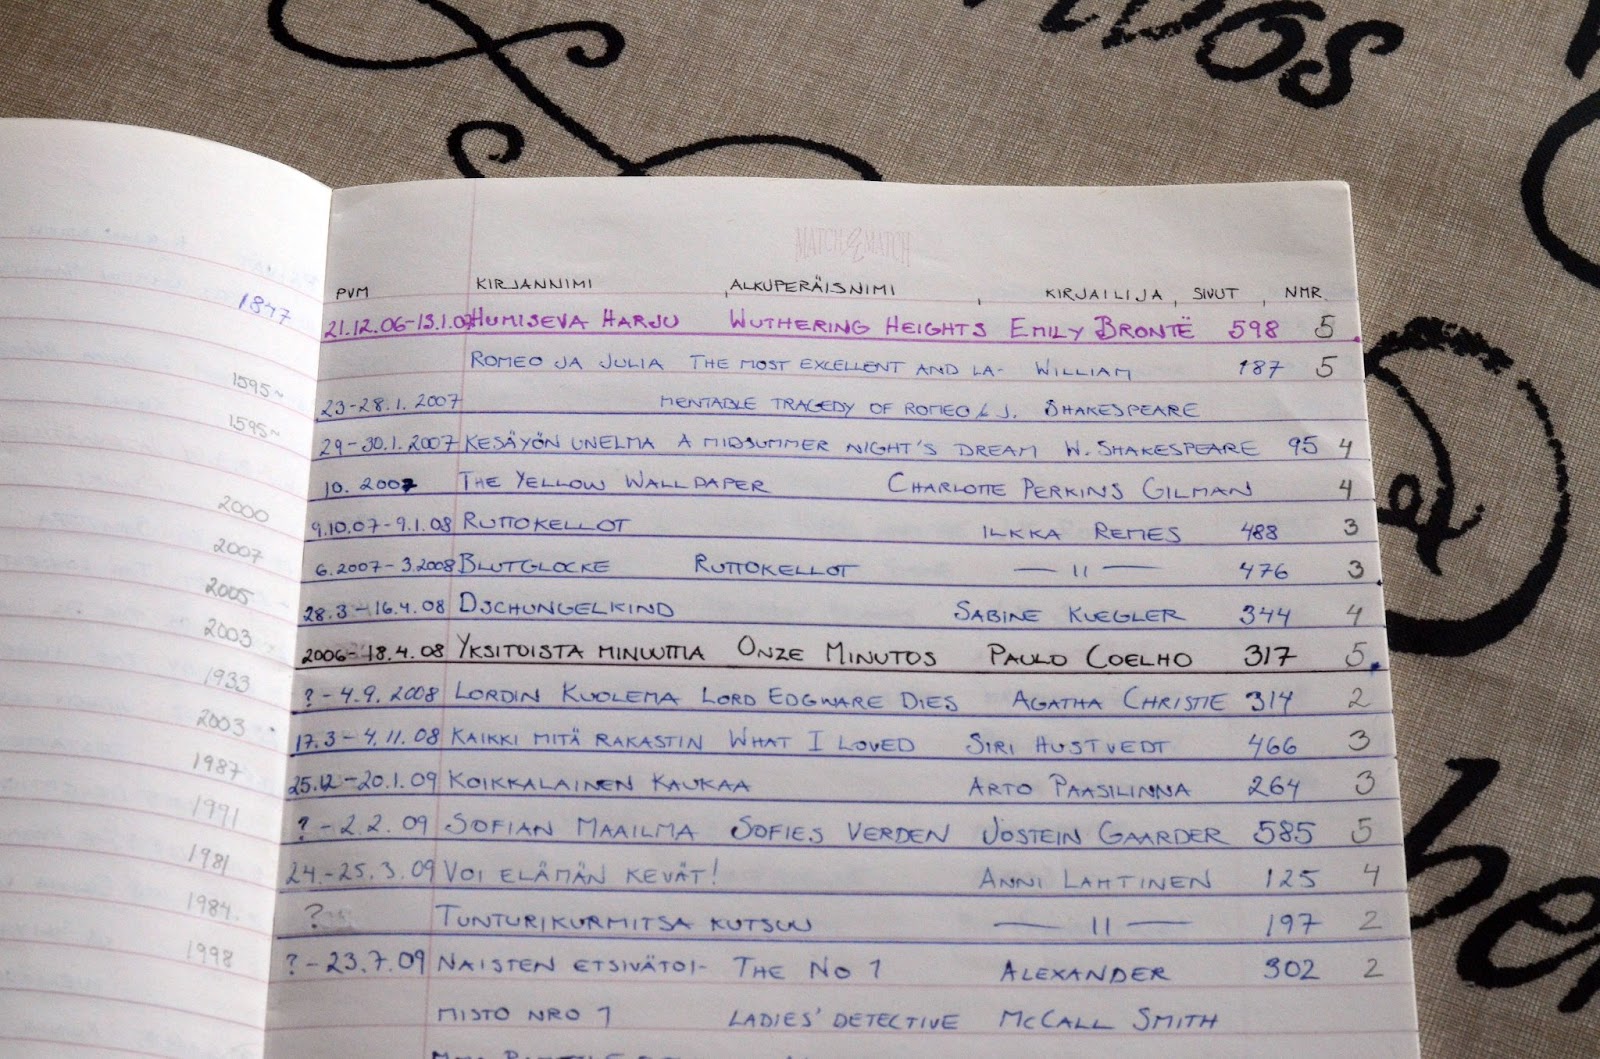 vos
MATCH & MATCH
1847
1595~
1595~
2000
2007
2005
2003
1933
2003
1987
1991
1981
1984.
1998
PVM KIRJANNIMI , ALKUPERÄISNIMI , KIRJAILIJA , SIVUT , NMR.
21.12.06-13.1.07 HUMISEVA HARJU WUTHERING HEIGHTS EMILY BRONTË 598 5
ROMEO JA JULIA THE MOST EXCELLENT AND LA- WILLIAM 187 5
23-28.1.2007 MENTABLE TRAGEDY OF ROMEO & J. SHAKESPEARE
29-30.1.2007 KESÄYÖN UNELMA A MIDSUMMER NIGHT'S DREAM W. SHAKESPEARE 95 4
10. 2007 THE YELLOW WALLPAPER CHARLOTTE PERKINS GILMAN 4
9.10.07-9.1.08 RUTTOKELLOT ILKKA REMES 488 3
6.2007-3.2008 BLUTGLOCKE RUTTOKELLOT — 11 — 476 3
28.3-16.4.08 DSCHUNGELKIND SABINE KUEGLER 344 4
2006-18.4.08 YKSITOISTA MINUUTTIA ONZE MINUTOS PAULO COELHO 317 5
? - 4.9.2008 LORDIN KUOLEMA LORD EDGWARE DIES AGATHA CHRISTIE 314 2
17.3-4.11.08 KAIKKI MITÄ RAKASTIN WHAT I LOVED SIRI HUSTVEDT 466 3
25.12-20.1.09 KOIKKALAINEN KAUKAA ARTO PAASILINNA 264 3
? - 2.2.09 SOFIAN MAAILMA SOFIES VERDEN JOSTEIN GAARDER 585 5
24.-25.3.09 VOI ELÄMÄN KEVÄT! ANNI LAHTINEN 125 4
? TUNTURIKURMITSA KUTSUU — 11 — 197 2
? - 23.7.09 NAISTEN ETSIVÄTOI- THE NO 1 ALEXANDER 302 2
MISTO NRO 1 LADIES' DETECTIVE MCCALL SMITH